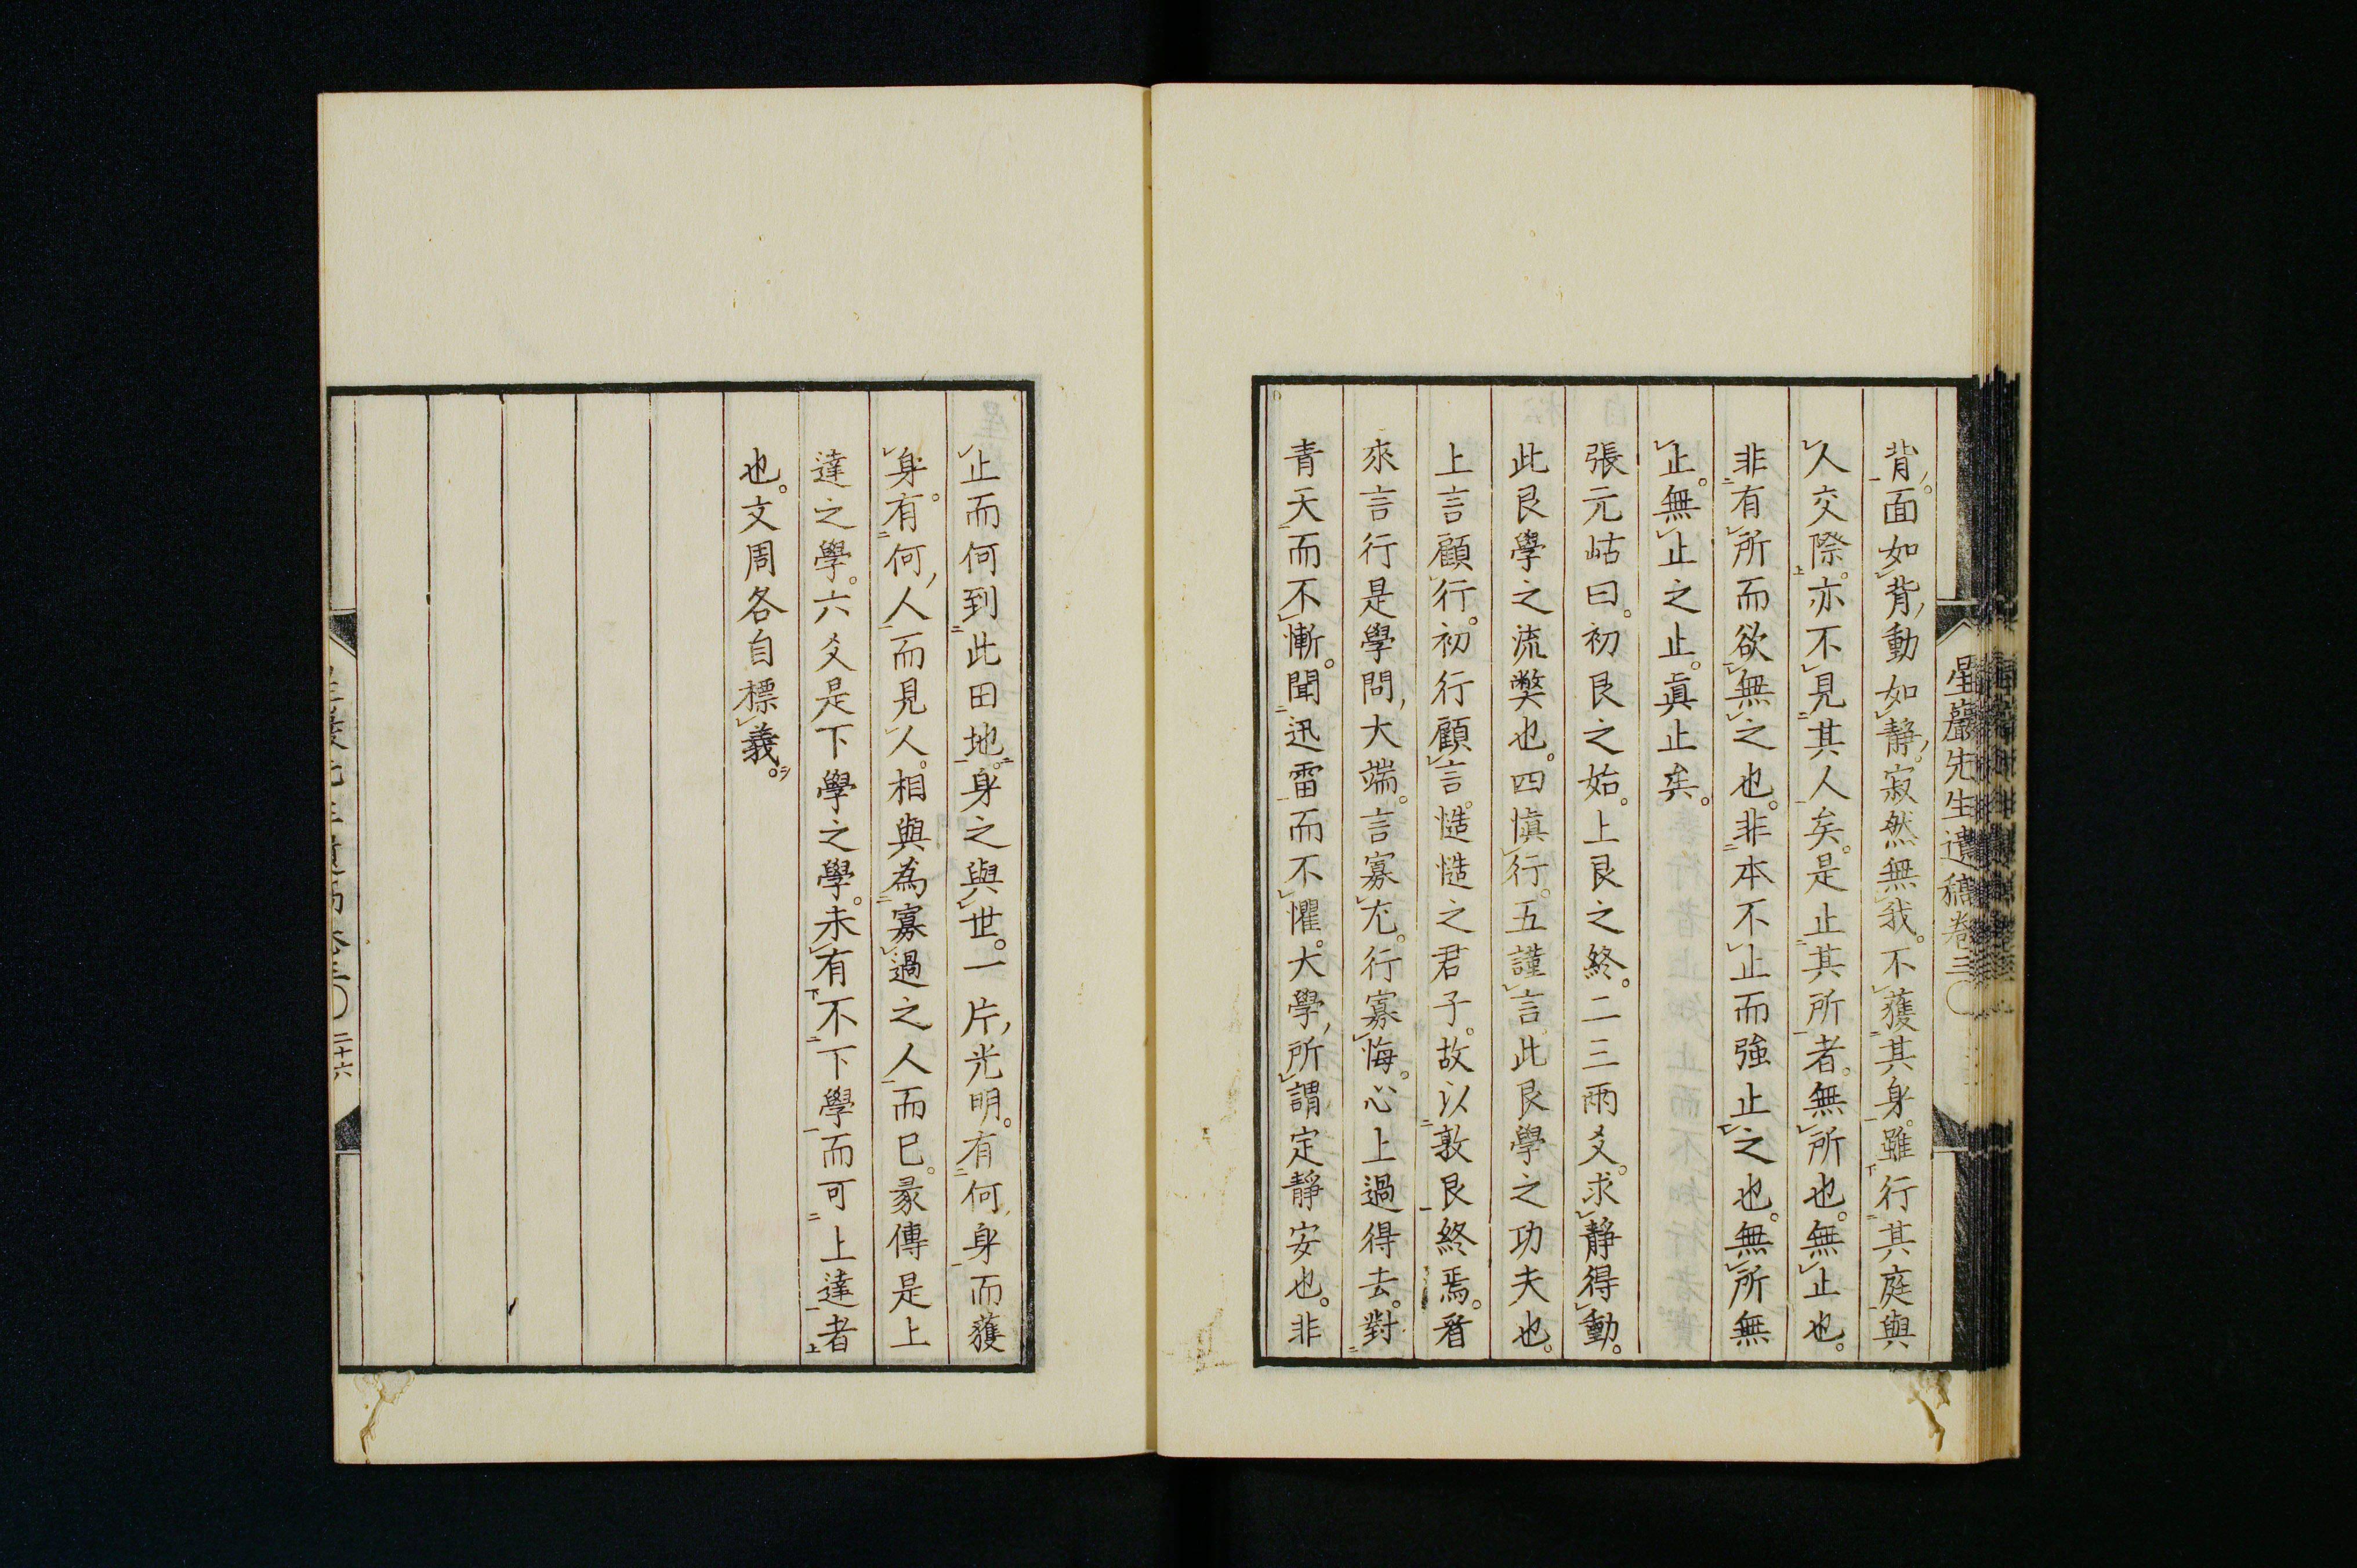 星巖先生遺稿卷三
背。面如背、動如靜、寂然無我。不獲其身。雖行其庭與
人交際。亦不見其人矣。是止其所者。無所也。無止也。
非有所而欲無之也。非本不止而強止之也。無所無
止。無止之止。眞止矣。
張元岵曰。初艮之始。上艮之終。二三兩爻。求靜得動。
此艮學之流弊也。四愼行。五謹言。此艮學之功夫也。
上言顧行。初行顧言。慥慥之君子。故以敦艮終焉。看
來言行是學問、大端。言寡尤。行寡悔。心上過得去。對
青天而不慚。聞迅雷而不懼。大學、所謂定靜安也。非
止而何到此田地。身之與世。一片、光明。有何、身而獲
身。有何、人而見人。相與為寡過之人而已。彖傳是上
達之學。六爻是下學之學。未有不下學而可上達者
也。文周各自標義。
二十六